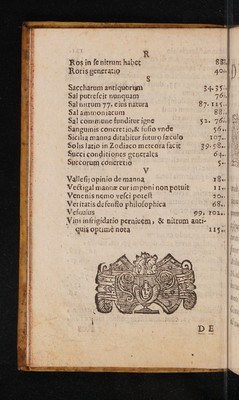 R
Ros in se nitrum habet 88.
Roris generatio 40.
S
Saccharum antiquorum 34.35.
Sal putrescit nunquam 76.
Sal nitrum 77. eius natura 87. 115.
Sal ammoniacum 88.
Sal commune funditur igne 52. 76.
Sanguinis concretio, & fusio vnde 56.
Sicilia manna ditabitur futuro sæculo 107.
Solis latio in Zodiaco meteora facit 39.58.
Succi conditiones generales 64.
Succorum concretio 5.
V
Vallesij opinio de manna 18.
Vectigal mannæ cur imponi non potuit 11.
Venenis nemo vesci potest 29.
Veritatis defensio philosophica 68.
Vesuuius 99. 102.
Vini infrigidatio per niuem, & nitrum anti-
quis optimè nota 115.
DE